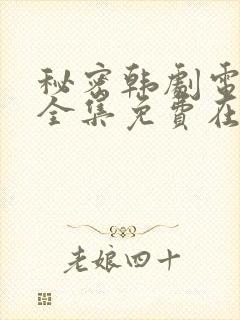 秘密韩剧電
全集免費在
老娘四十